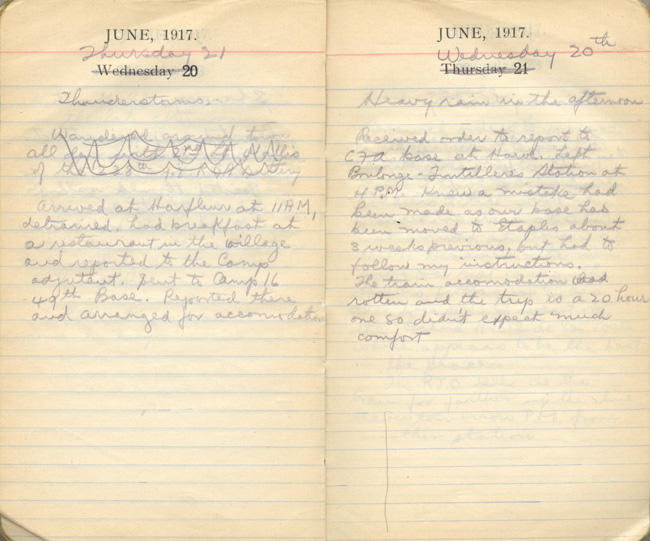 JUNE, 1917.
Thursday 21
Wednesday 20
Thunderstorms.
Wandered around town
all day with
of the
Arrived at Harfleur at 11 AM,
detrained, had breakfast at
a restaurant in the village
and reported to the Camp
adjutant. Sent to Camp 16
49th Base. Reported there
and arranged for accomodation
JUNE, 1917.
Wednesday 20th
Thursday 21
Heavy rain in the afternoon
Received order to report to
CFA base at Havre. Left
Boulonge - Tintilleries Station at
4 P.M. Knew a mistake had
been made as our base had
been moved to Etaples about
3 weeks previous, but had to
follow my instructions.
The train accomodation was
rotten and the trip is a 20 hour
one so didn't expect much
comfort